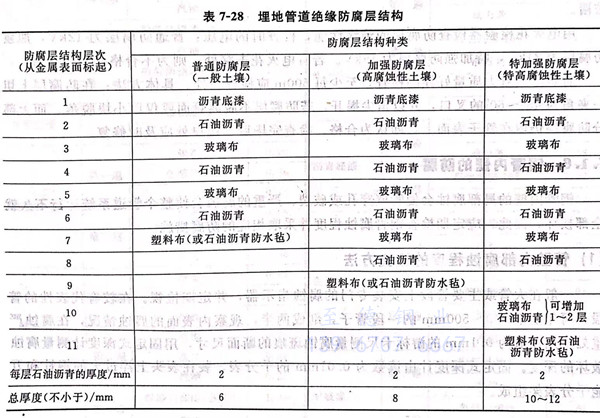 表 7-28 埋地管道绝缘防腐层结构
防腐层结构层次
(从金属表面标起)
防腐层结构种类
普通防腐层
(一般土壤)
加强防腐层
(高腐蚀性土壤)
特加强防腐层
(特高腐蚀性土壤)
1 沥青底漆 沥青底漆 沥青底漆
2 石油沥青 石油沥青 石油沥青
3 玻璃布 玻璃布 玻璃布
4 石油沥青 石油沥青 石油沥青
5 玻璃布 玻璃布 玻璃布
6 石油沥青 石油沥青 石油沥青
7 塑料布(或石油沥青防水毡) 玻璃布 玻璃布
8 石油沥青 石油沥青
9 塑料布(或石油沥青防水毡)
10 玻璃布 可增加
石油沥青 1~2层
11 塑料布(或石油
沥青防水毡)
每层石油沥青的厚度/mm 2 2 2
总厚度(不小于)/mm 6 8 10~12